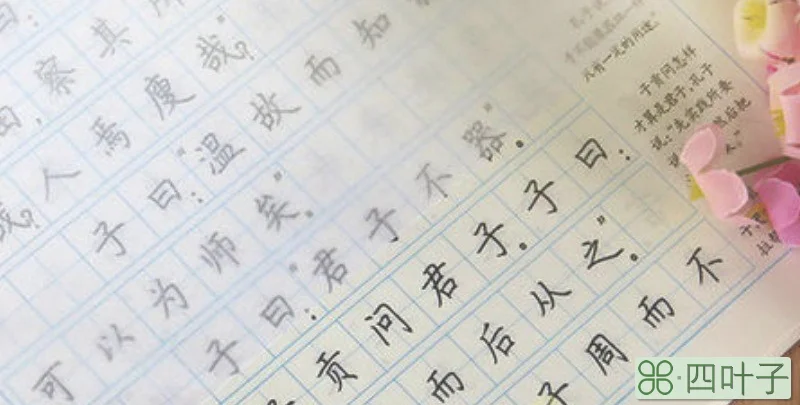 察其所
人焉廋哉？
子曰：“温故而知
可以为师矣。”
子曰：“君子不器。”
贡问君子。子曰：
而后从之。”
子周而不
只有一定的用途。
子贡问怎样
才算是君子，孔子
说：“先实践所要
四叶子